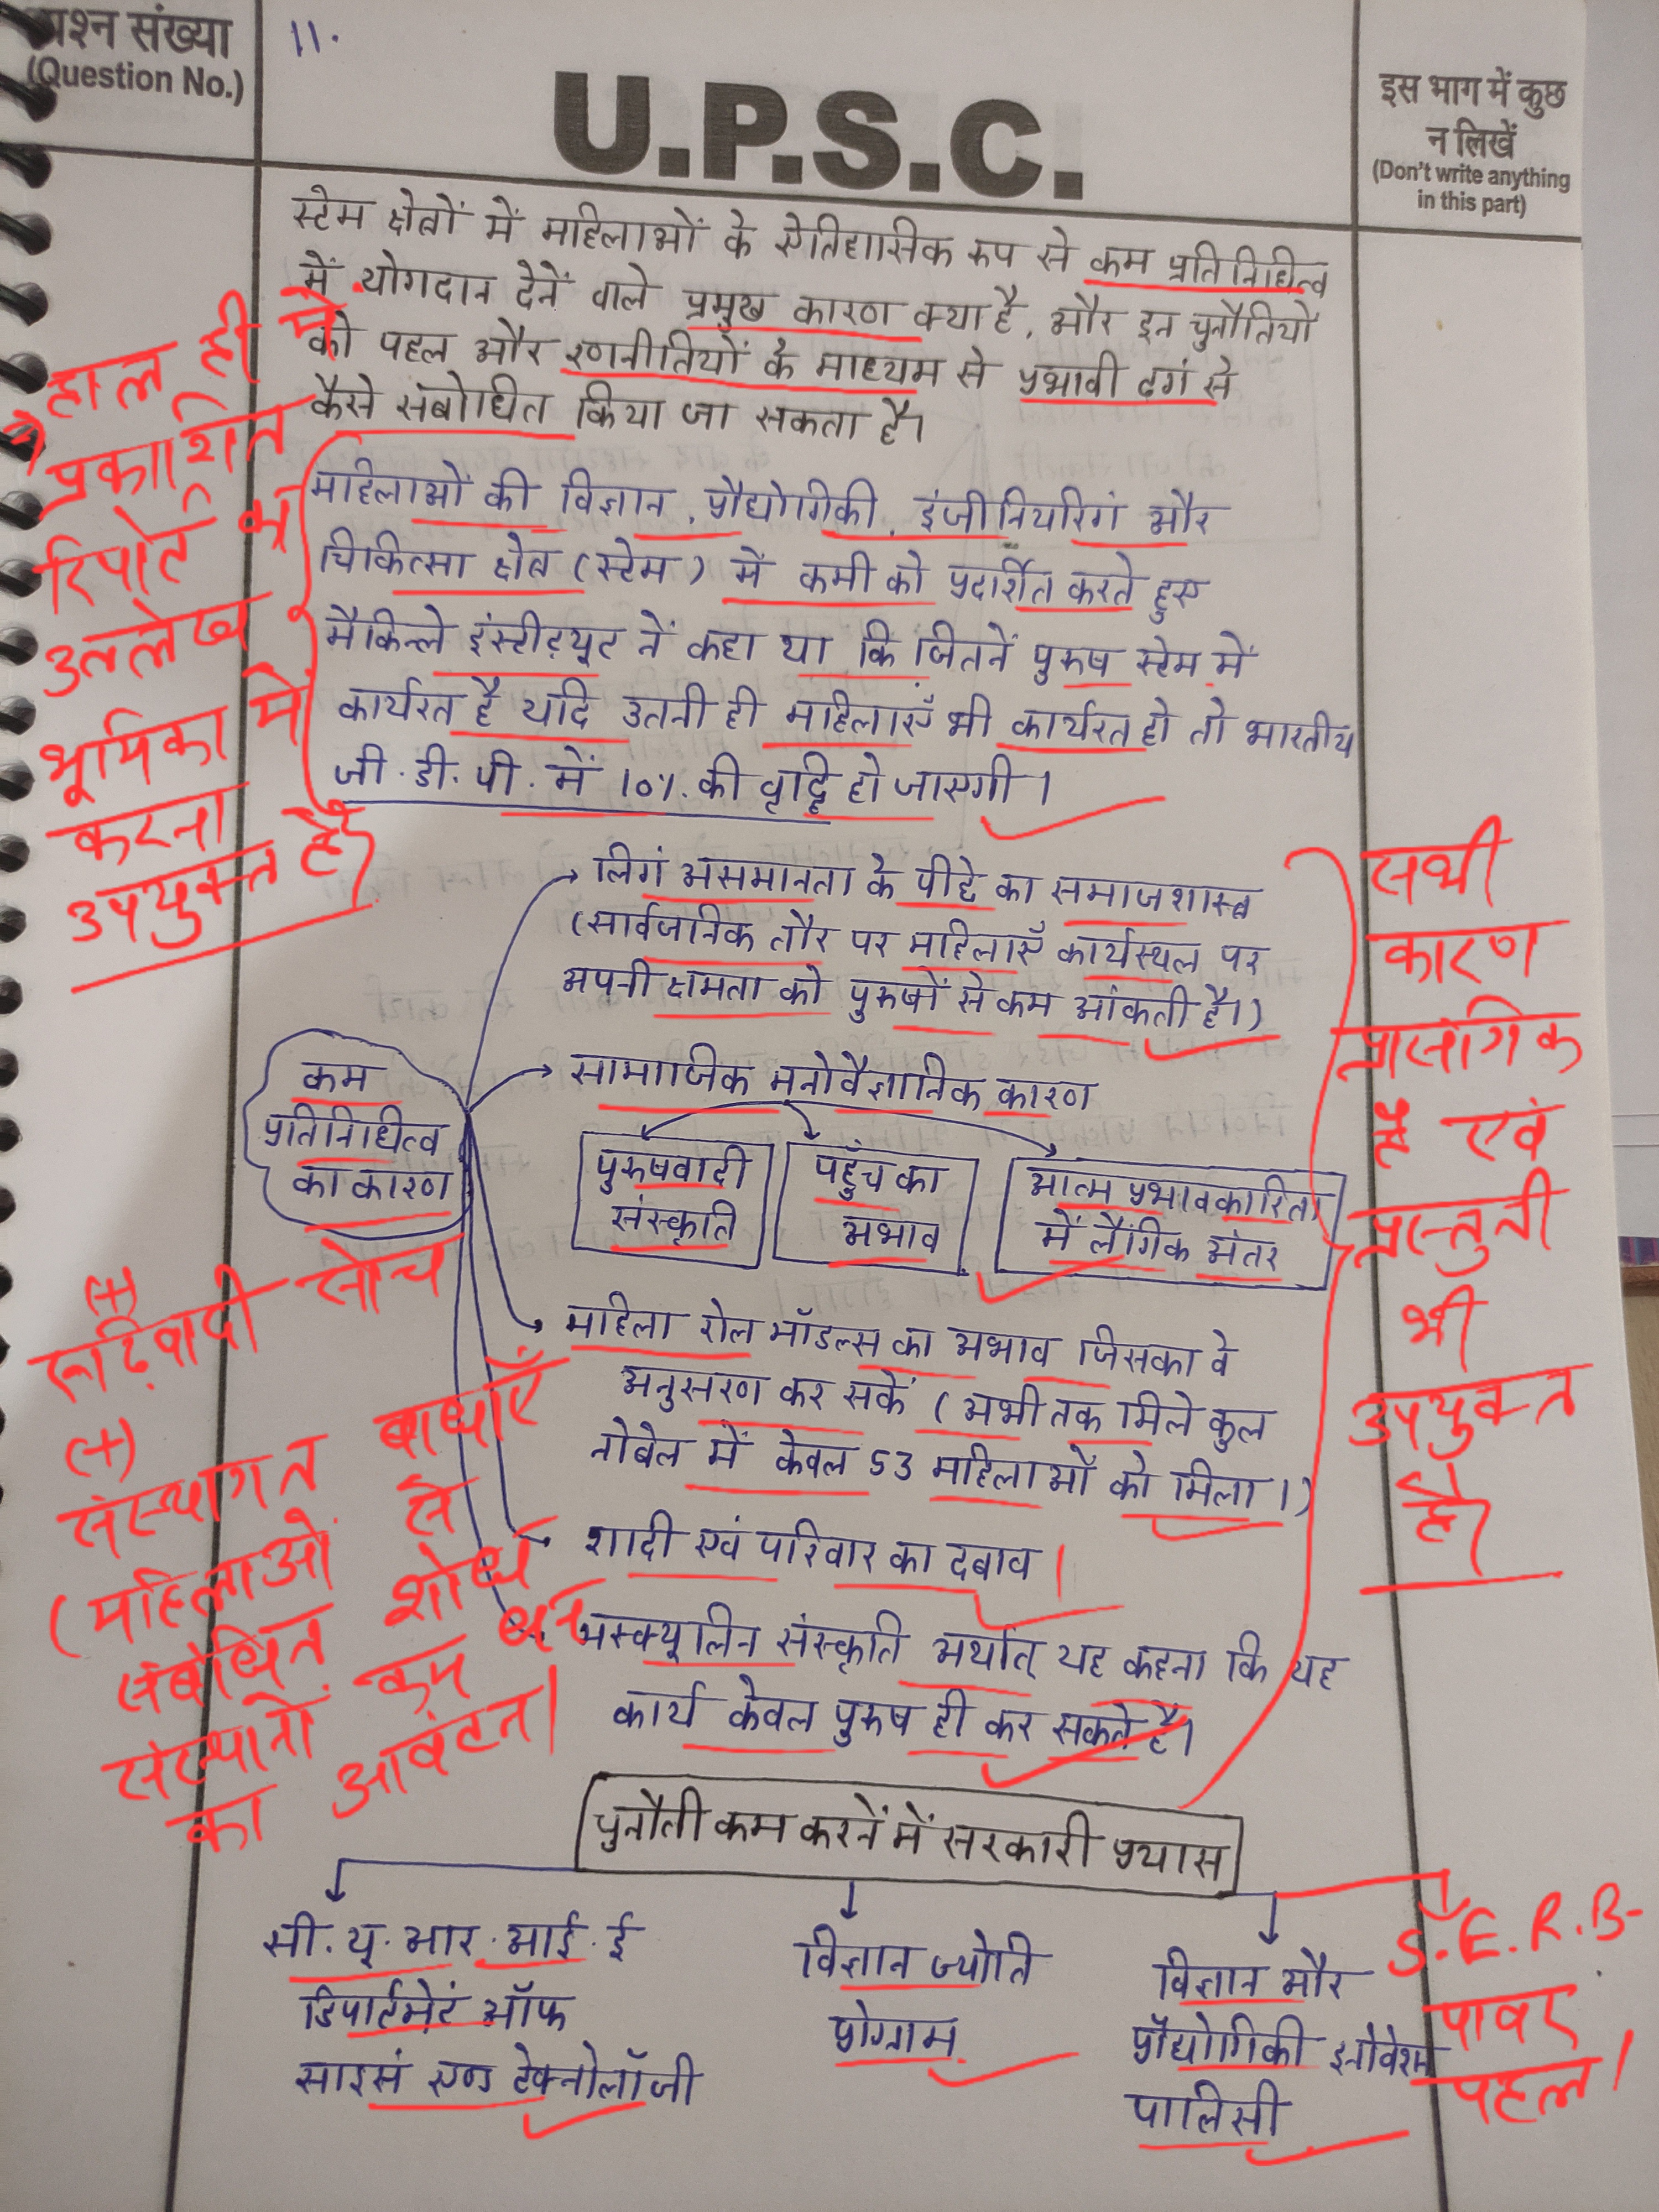 प्रश्न संख्या
(Question No.)
11.
U.P.S.C.
इस भाग में कुछ
न लिखें
(Don't write anything
in this part)
स्टेम क्षेत्रों में महिलाओं के ऐतिहासिक रूप से कम प्रतिनिधित्व
में योगदान देनें वाले प्रमुख कारण क्या है, और इन चुनौतियों
को पहल और रणनीतियों के माध्यम से प्रभावी ढगं से
कैसे संबोधित किया जा सकता है।
हाल ही में
प्रकाशित
रिपोर्ट का
उल्लेख
भूमिका में
करना
उपयुक्त है।
महिलाओं की विज्ञान, प्रौद्योगिकी, इंजीनियरिगं और
चिकित्सा क्षेत्र (स्टेम) में कमी को प्रदर्शित करते हुए
मैकिन्ले इंस्टीट्यूट नें कहा था कि जितनें पुरुष स्टेम में
कार्यरत है यदि उतनी ही महिलाएँ भी कार्यरत हो तो भारतीय
जी.डी.पी. में 10%. की वृद्धि हो जाएगी।
लिगं असमानता के पीछे का समाजशास्त्र
(सार्वजनिक तौर पर महिलाएँ कार्यस्थल पर
अपनी क्षमता को पुरुषों से कम आंकती है।)
कम
प्रतिनिधित्व
का कारण
सामाजिक मनोवैज्ञानिक कारण
पुरुषवादी
संस्कृति
पहुँच का
अभाव
आत्म प्रभावकारिता
में लैंगिक अंतर
महिला रोल मॉडल्स का अभाव जिसका वे
अनुसरण कर सकें (अभी तक मिले कुल
नोबेल में केवल 53 महिलाओं को मिला।)
शादी एवं परिवार का दबाव।
मस्क्यूलिन संस्कृति अर्थात् यह कहना कि यह
कार्य केवल पुरुष ही कर सकते है।
सभी
कारण
प्रासंगिक
है एवं
प्रस्तुती
भी
उपयुक्त
है।
(+)
रूढ़िवादी सोच
(+)
संस्थागत बाधाएँ
(महिलाओं से
संबंधित शोध
संस्थानों कम धन
का आवंटन।
चुनौती कम करनें में सरकारी प्रयास
सी.यू.आर.आई.ई
डिपार्टमेटं ऑफ
साइसं एण्ड टेक्नोलॉजी
विज्ञान ज्योति
प्रोग्राम
विज्ञान और
प्रौद्योगिकी इनोवेशन
पालिसी
S.E.R.B-
पावर
पहल।